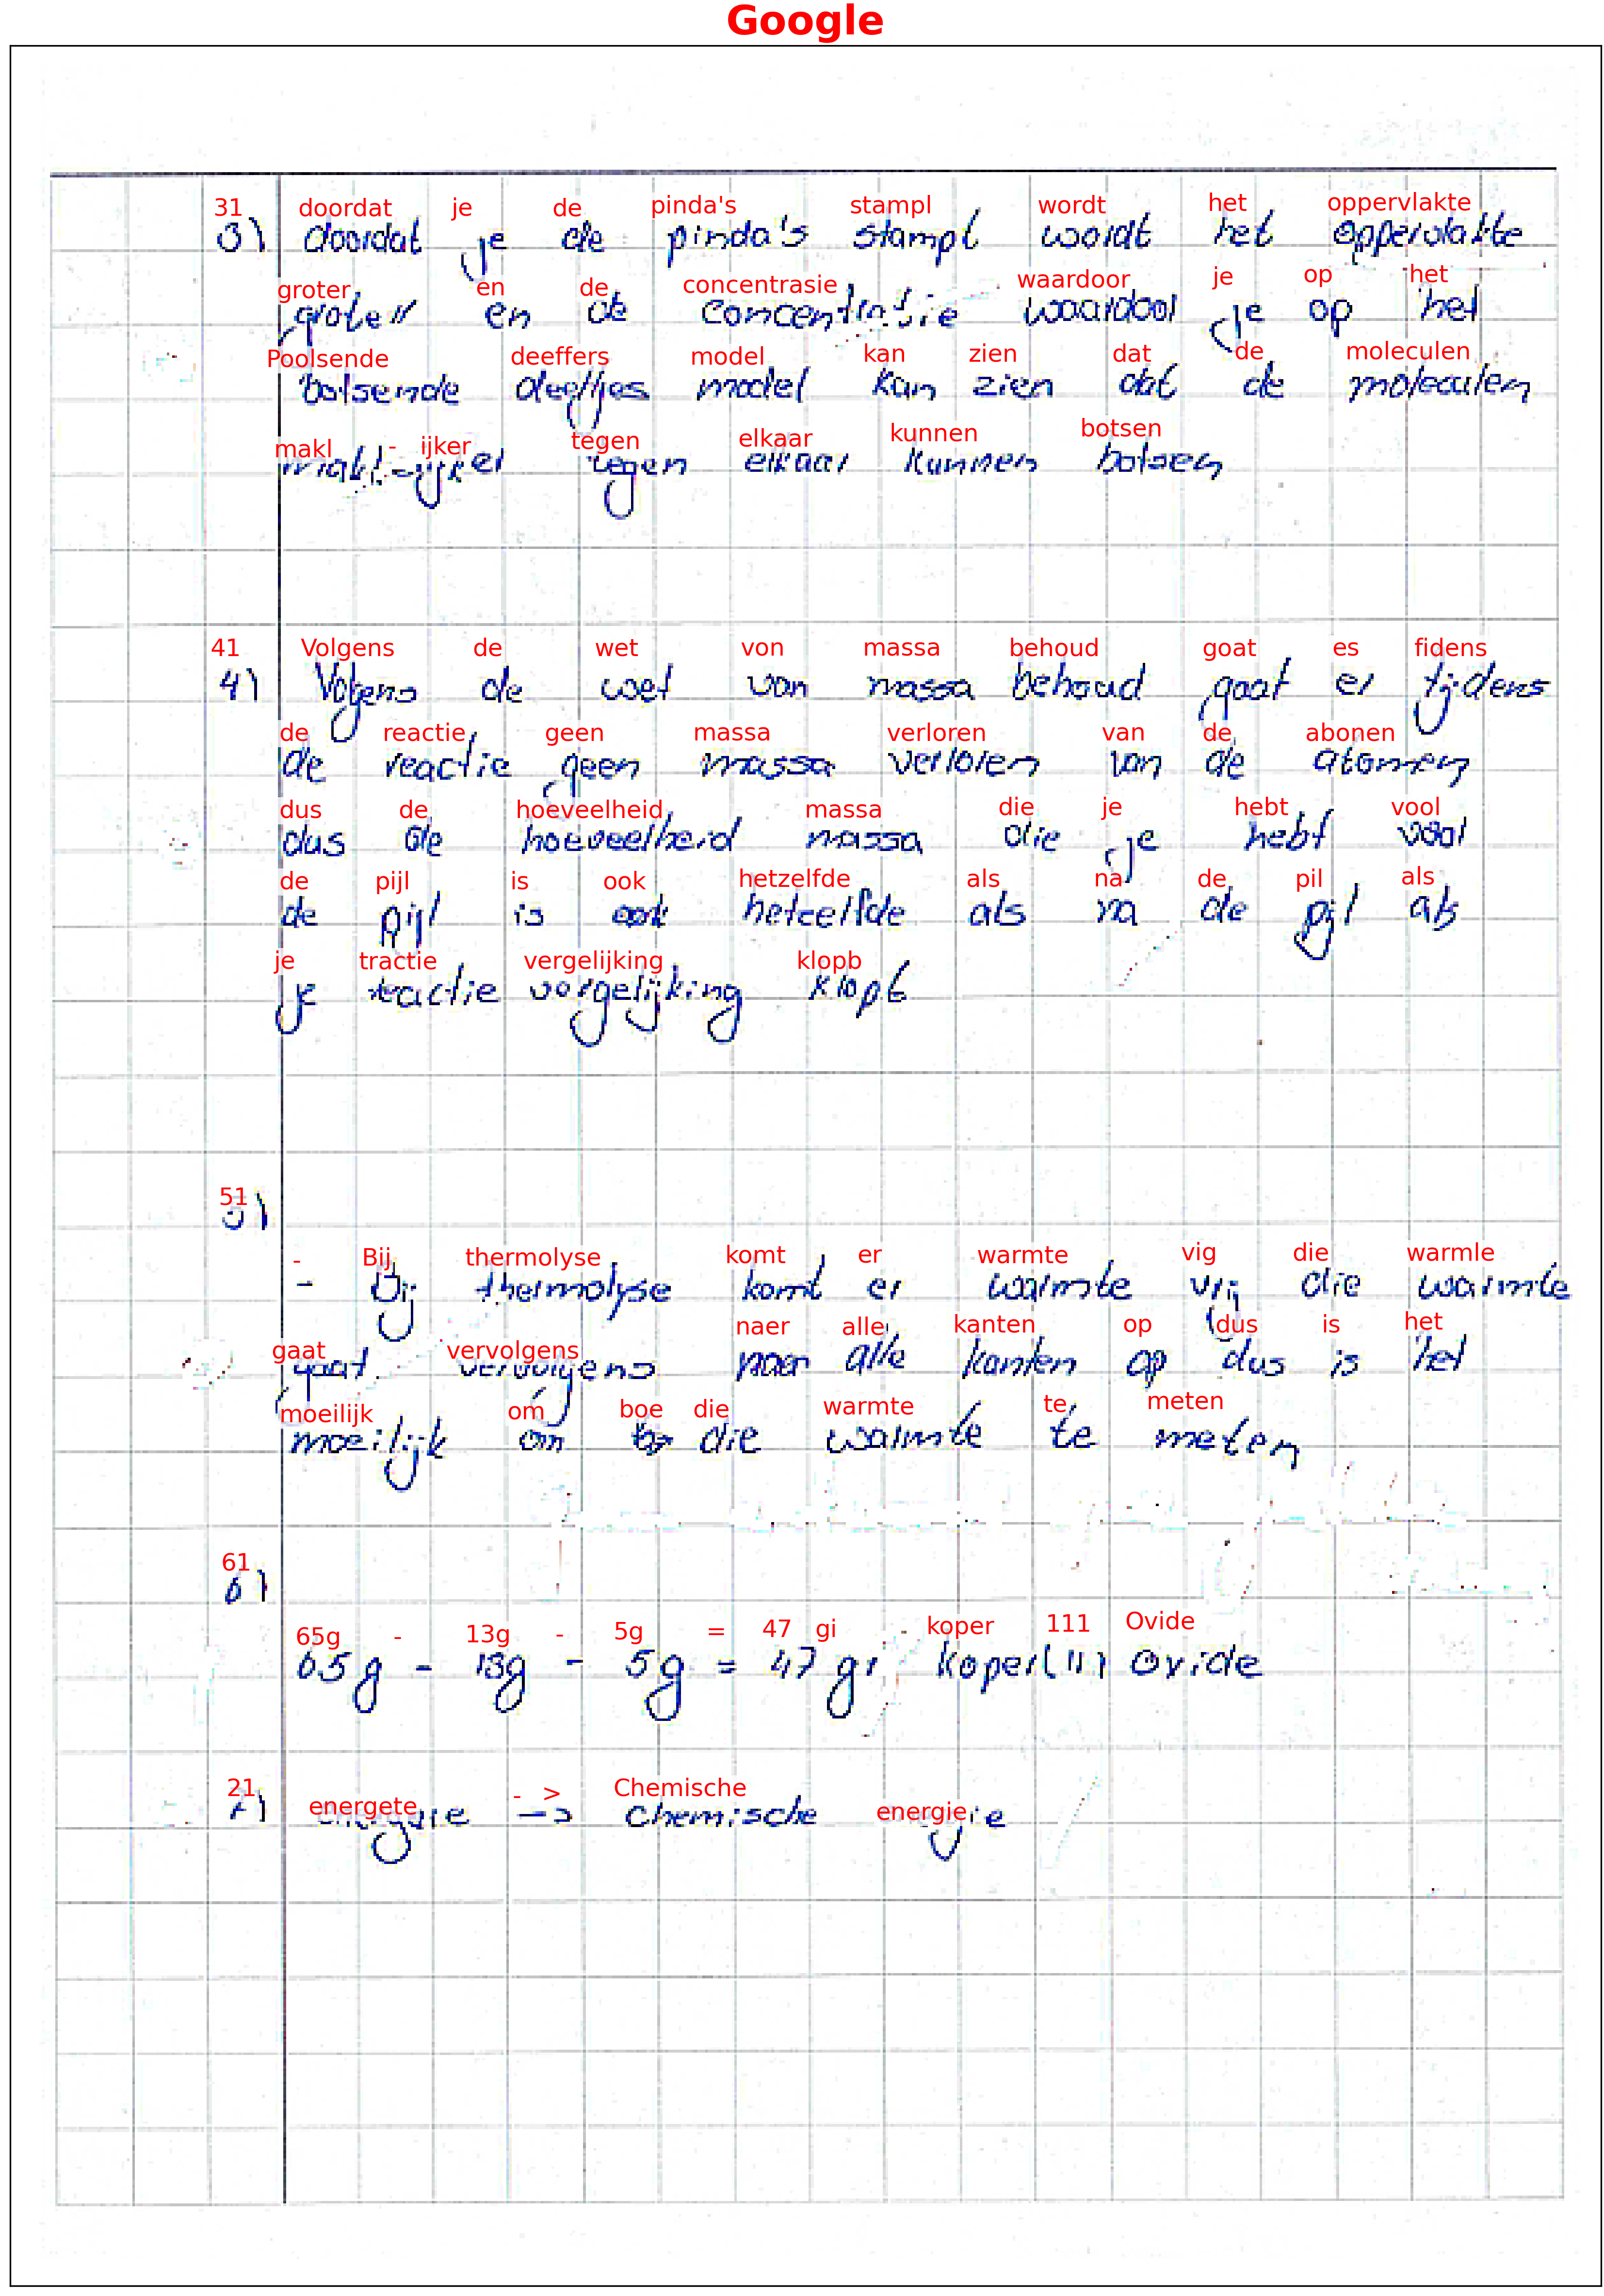 Google
31 doordat je de pinda's stampl wordt het oppervlakte
3) doordat je de pinda's stampt wordt het oppervlakte
groter en de concentrasie waardoor je op het
groter en de concentratie waardoor je op het
Poolsende deeffers model kan zien dat de moleculen
botsende deeltjes model kan zien dat de moleculen
makl - ijker tegen elkaar kunnen botsen
makl-ijker tegen elkaar kunnen botsen
41 Volgens de wet von massa behoud goat es fidens
4) Volgens de wet van massa behoud gaat er tijdens
de reactie geen massa verloren van de abonen
de reactie geen massa verloren van de atomen
dus de hoeveelheid massa die je hebt vool
dus de hoeveelheid massa die je hebt voor
de pijl is ook hetzelfde als na de pil als
de pijl is ook hetzelfde als na de pijl als
je tractie vergelijking klopb
je reactie vergelijking klopt
51
5)
- Bij thermolyse komt er warmte vig die warmle
- Bij thermolyse komt er warmte vrij die warmte
gaat vervolgens naer alle kanten op dus is het
gaat vervolgens naar alle kanten op dus is het
moeilijk om boe die warmte te meten
moeilijk om die warmte te meten
61
6)
65g - 13g - 5g = 47 gi koper 111 Ovide
65g - 13g - 5g = 47 gr koper(II) oxide
21 energete - > Chemische energie
energie -> chemische energie